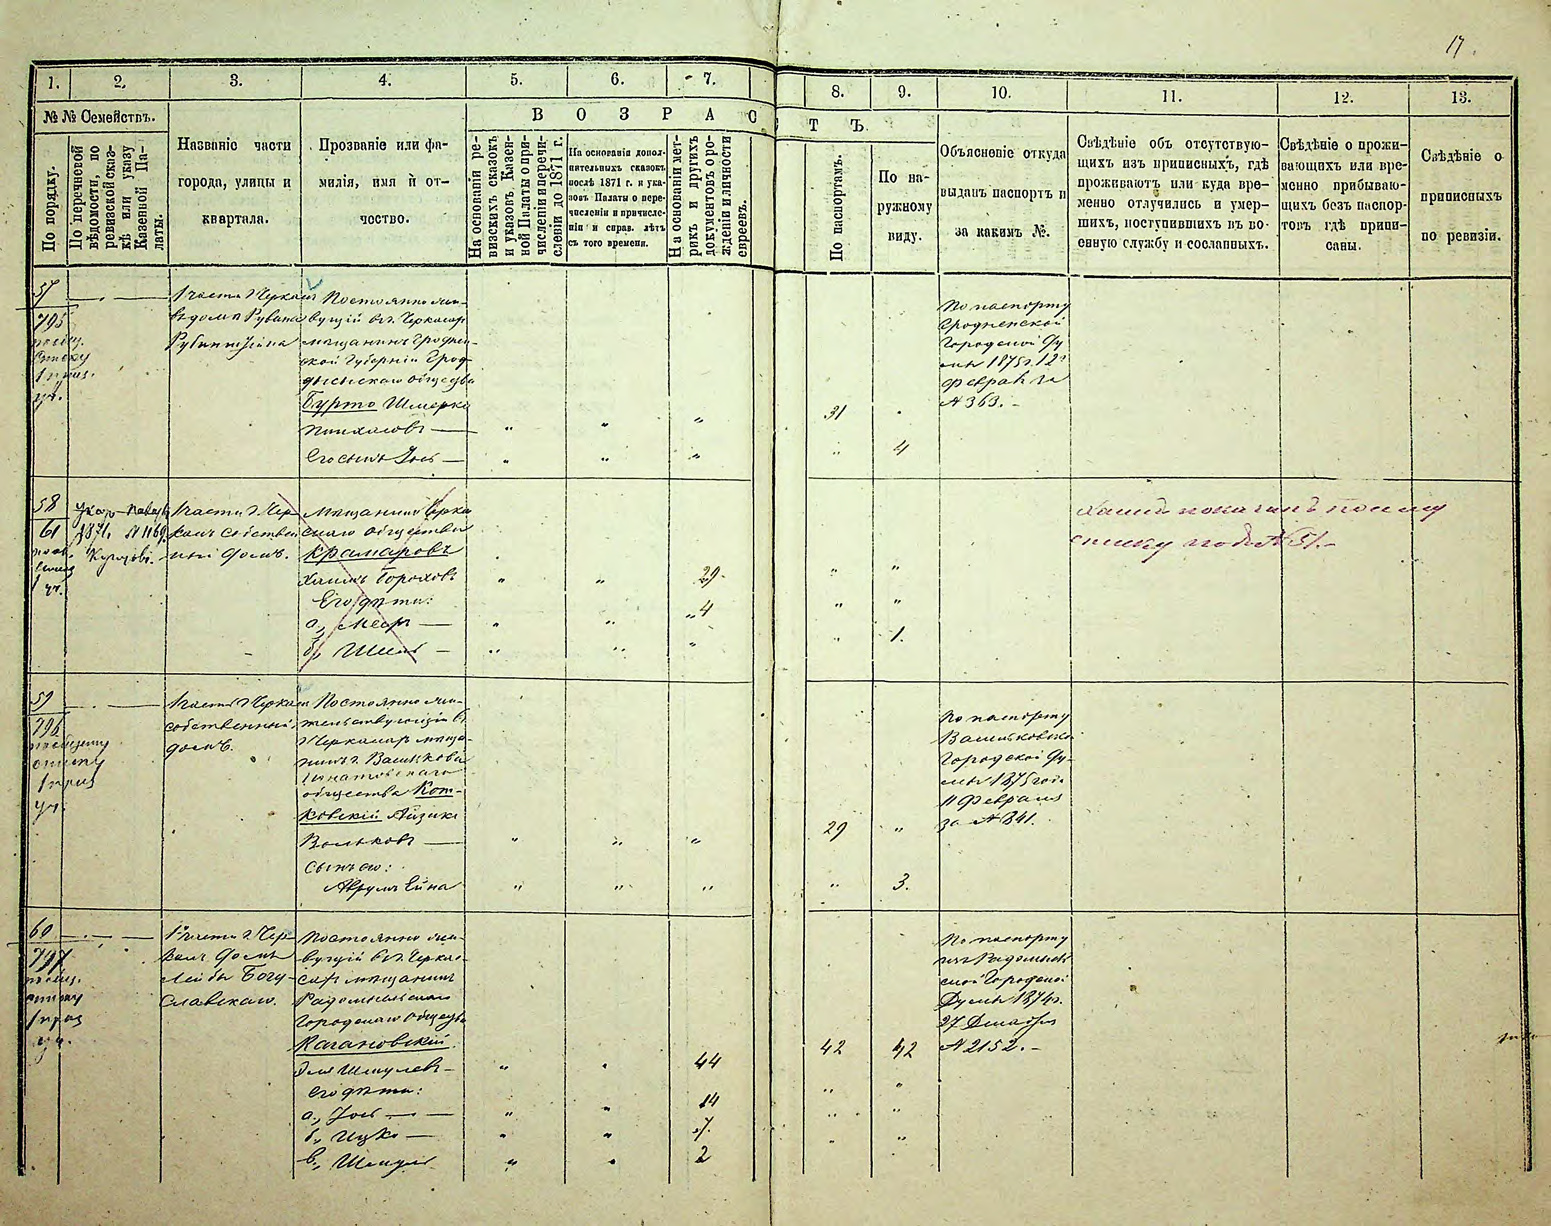 17
1. 2. 3. 4. 5. 6. 7. 8. 9. 10. 11. 12. 13.
№ № Семействъ.
По порядку.
По перечневой
вѣдомости, по
ревизской сказ-
кѣ или указу
Казенной Па-
латы.
Названіе части
города, улицы и
квартала.
Прозваніе или фа-
милія, имя и от-
чество.
В О З Р А С Т Ъ
На основаніи ре-
визскихъ сказокъ
и указовъ Казен-
ной Палаты о при-
численіи и перечи-
сленіи до 1871 г.
На основаніи допол-
нительныхъ сказокъ
послѣ 1871 г. и ука-
зовъ Палаты о пере-
численіи и причисле-
ніи и справ. лѣтъ
съ того времени.
На основаніи мет-
рикъ и другихъ
документовъ о ро-
жденіи и личности
евреевъ.
По паспортамъ.
По на-
ружному
виду.
Объясненіе откуда
выданъ паспортъ и
за какимъ №.
Свѣдѣніе объ отсутствую-
щихъ изъ приписныхъ, гдѣ
проживаютъ или куда вре-
менно отлучились и умер-
шихъ, поступившихъ въ во-
енную службу и сосланныхъ.
Свѣдѣніе о прожи-
вающихъ или вре-
менно прибываю-
щихъ безъ паспор-
товъ гдѣ припи-
саны.
Свѣдѣніе о
приписныхъ
по ревизіи.
57
795
1 части г. Черкас
въ домѣ Рувина
Рубинштейна
Постоянно жи-
вущій въ г. Черкасах
мѣщанинъ Гроднен-
ской Губерніи Грод-
ненскаго общества
Бурто Шмерко
Пинхасовъ
Его сынъ Іось
31
4
По паспорту
Гродненской
Городской Ду-
мы 1875 г. 12
февраля
№ 363.
58
61
Указ
1871 № 1169
1 части г. Чер-
касъ собствен-
ный домъ.
Мѣщанинъ Черка
скаго общества
Крамаровъ
Хаимъ Бороховъ
Его дѣти:
а, Меер
б, Шмиль
29
4
1.
Хаимъ показанъ по сему
списку подъ № 51.
59
796
посему
списку
1 части г. Черкас
собственный
домъ.
Постоянно жи-
тельствующій въ
Черкасах мѣща-
нинъ г. Василькова
Игнатовскаго
общества Кот-
ковскій Айзик
Вольковъ
Сынъ его:
Аврумъ Ейна
29
3.
По паспорту
Васильковской
Городской Ду-
мы 1875 года
11 Февраля
за № 841.
60
797
списку
1 части г. Чер-
касъ домъ
Лейбы Богу-
славскаго.
Постоянно жи-
вущій въ г. Черкас-
сах мѣщанинъ
Радомысльскаго
Городскаго общества
Кагановскій
Эля Шмулевъ
Его дѣти:
а, Іось
б, Ицко
в, Шмуль
44
14
7
2
42
42
По паспорту
изъ Радомысль
ской Городской
Думы 1874 г.
27 Декабря
№ 2152.